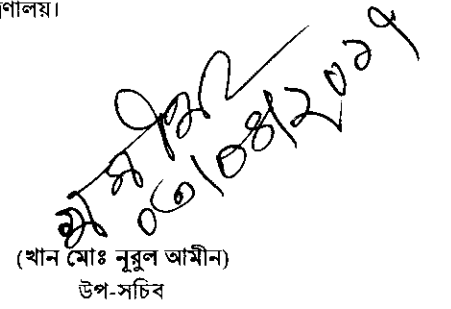 ণালয়।
০৩/০৪/২০১৭
(খান মোঃ নূরুল আমীন)
উপ-সচিব